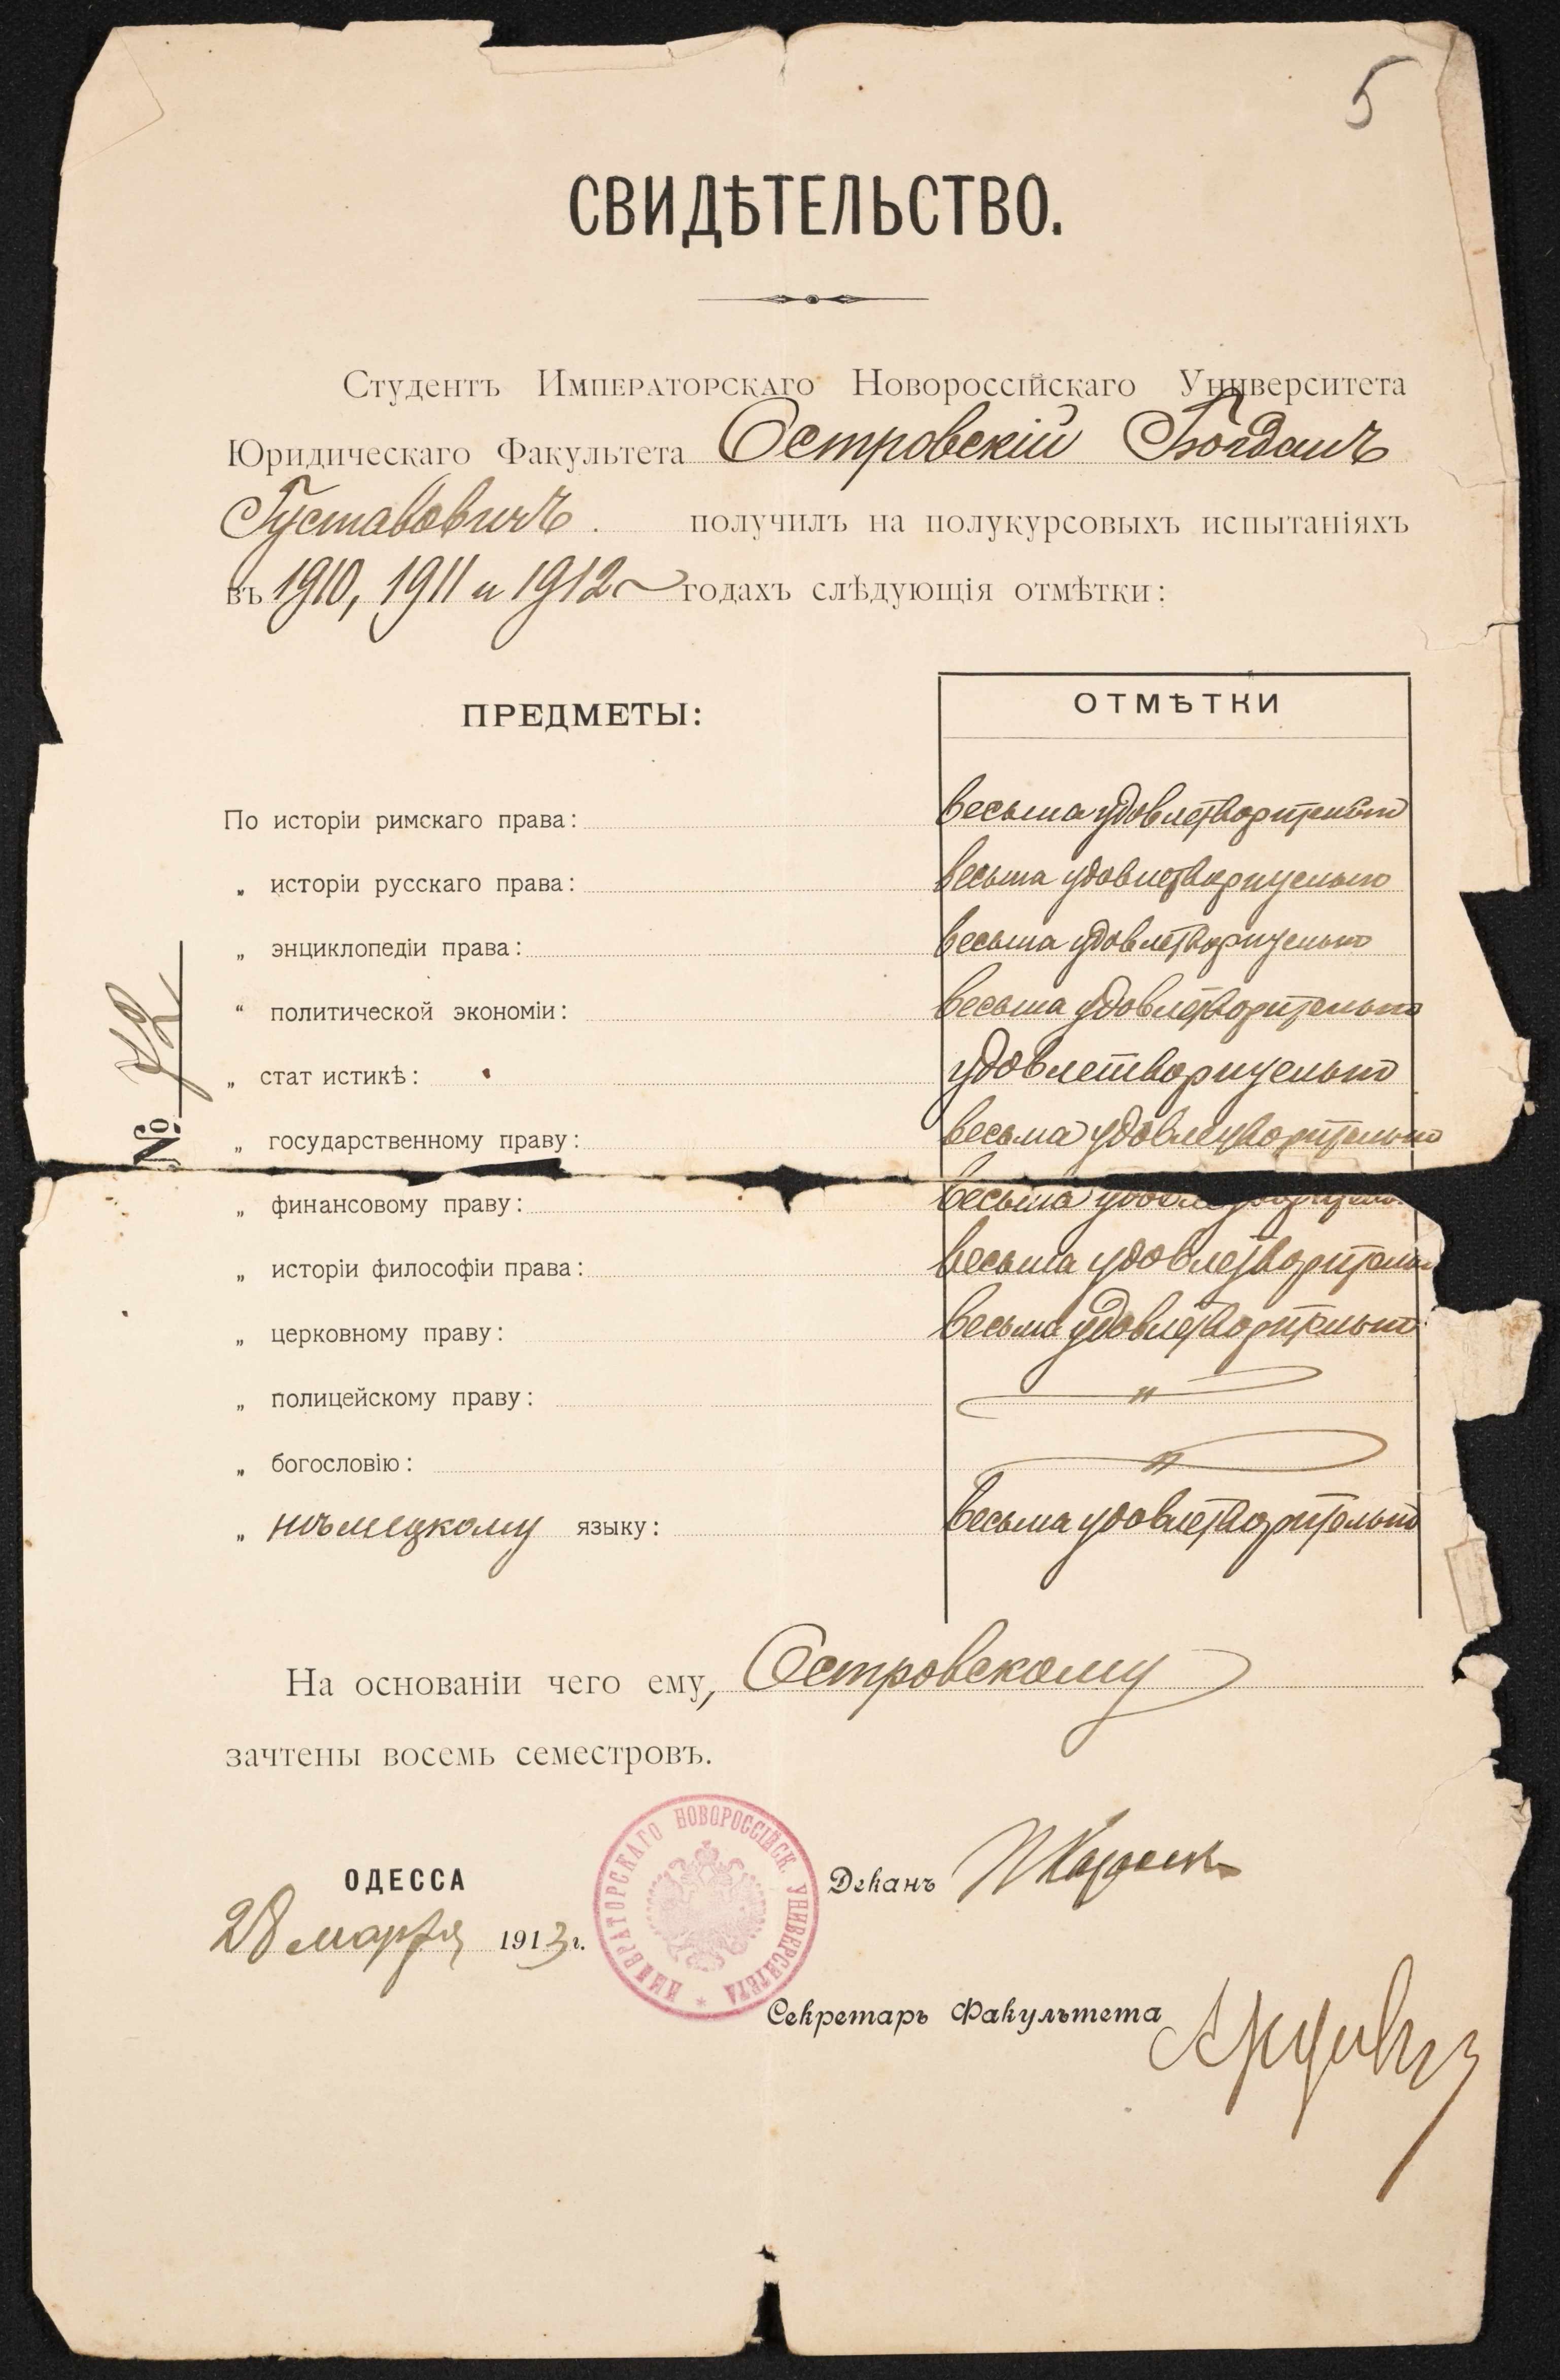 5
СВИДѢТЕЛЬСТВО.
Студентъ Императорскаго Новороссійскаго Университета
Юридическаго Факультета Островскій Богданъ
Густавовичъ. получилъ на полукурсовыхъ испытаніяхъ
въ 1910, 1911 и 1912 годахъ слѣдующія отмѣтки:
ПРЕДМЕТЫ: ОТМѢТКИ
По исторіи римскаго права: весьма удовлетворительно
„ исторіи русскаго права: весьма удовлетворительно
„ энциклопедіи права: весьма удовлетворительно
“ политической экономіи: весьма удовлетворительно
„ стат истикѣ: удовлетворительно
„ государственному праву: весьма удовлетворительно
„ финансовому праву: весьма удовлетворительно
„ исторіи философіи права: весьма удовлетворительно
„ церковному праву: весьма удовлетворительно
„ полицейскому праву: "
„ богословію: "
„ нѣмецкому языку: весьма удовлетворительно
№ 72
На основаніи чего ему, Островскому
зачтены восемь семестровъ.
ОДЕССА
28 марта 1913 г.
ИМПЕРАТОРСКАГО НОВОРОССІЙСК. УНИВЕРСИТЕТА *
Деканъ
Секретарь Факультета